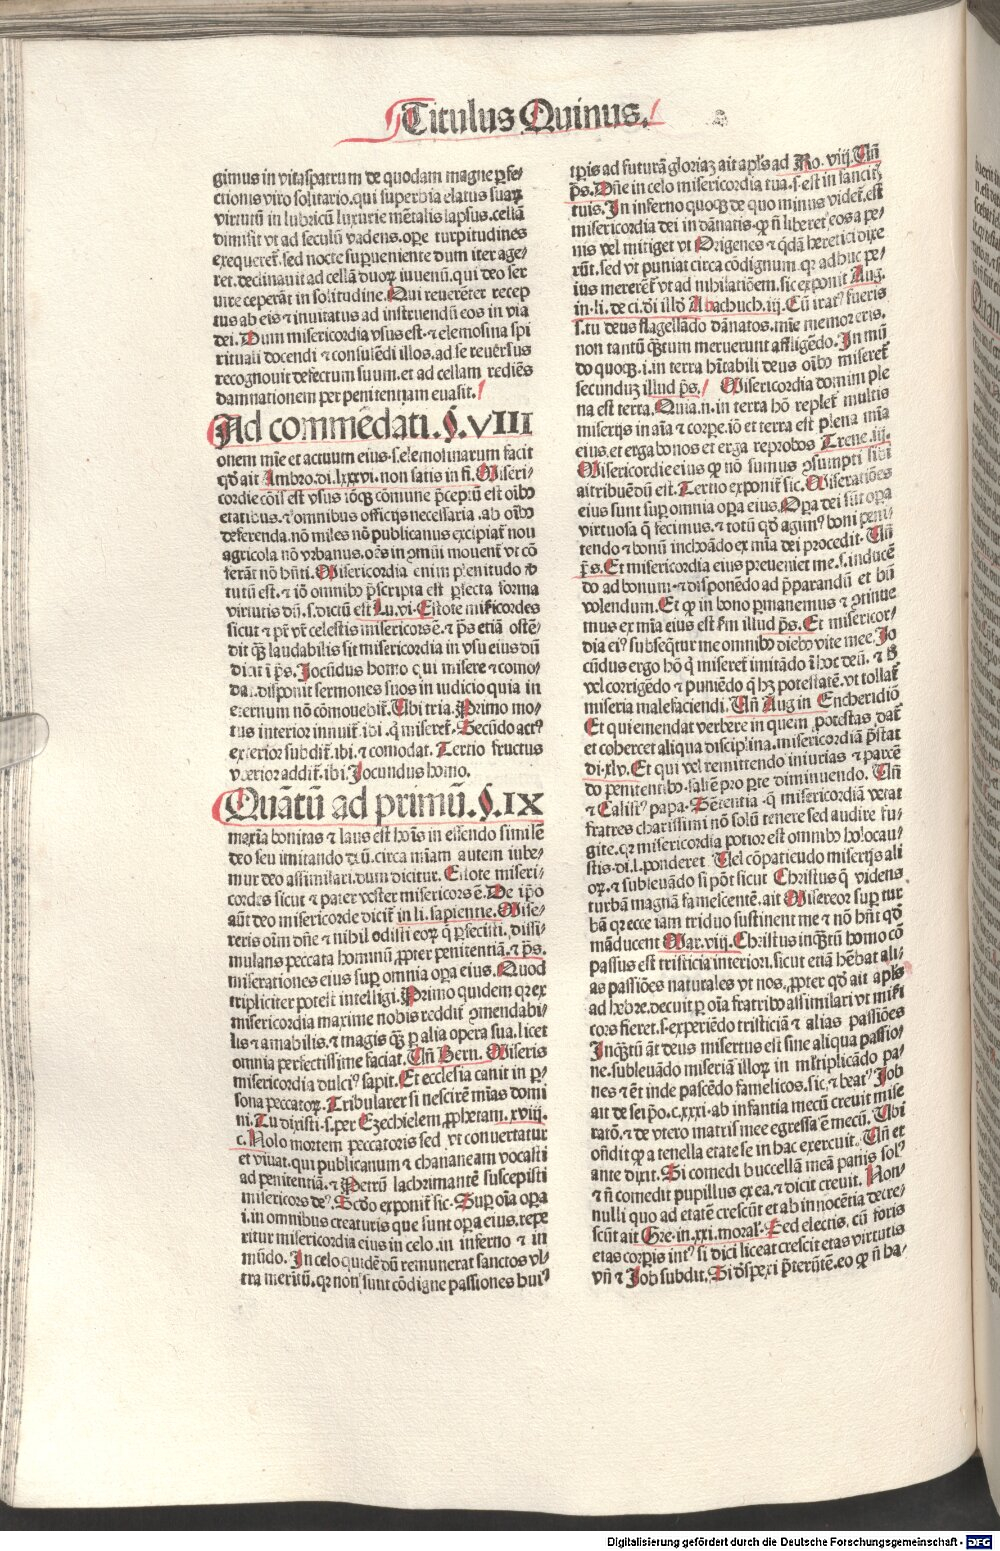 Titulus Quinus.
gimus in vitaspatrum de quodam magne ꝑfe-
ctionis viro solitario.qui superbia elatus suaꝝ
virtutū in lubricū luxurie mētalis lapsus.cellā
dimisit vt ad seculū vadens.oꝑe turpitudines
exequeret᷑.sed nocte supueniente dum iter age-
ret.declinauit ad cellā duoꝝ iuuenū.qui deo ser
uire ceperāt in solitudine.Qui reuerēter recep
tus ab eis ⁊ inuitatus ad instruendū eos in via
dei.Dum misericordia vsus est.⁊ elemosina spi
rituali docendi ⁊ consulēdi illos.ad se reuersus
recognouit defectum suum.et ad cellam rediēs
damnationem per penitentiam euasit.
Ad commēdati.§.VIII
onem mīe et actuum eius.s.elemosinarum facit
qd̄ ait Ambro.di.lxxxvi.non satis in fi.Miseri-
cordie cōis est vsus iōqꝫ cōmune p̄ceptū est oībꝰ
etatibus.⁊ omnibus officijs necessaria.ab oībꝰ
deferenda.nō miles nō publicanus excipiat᷑ non
agricola nō vrbanus.oēs in ꝯmūi mouent᷑ vt cō
ferāt nō hn̄ti.Misericordia enim plenitudo v̄
tutū est.⁊ iō omnibꝰ p̄scripta est ꝑfecta forma
virtutis dū.s.dictū est Lu.vi.Estote misericordes
sicut ⁊ pr̄ vr̄ celestis misericors ē.⁊ p̄s etiā ostē-
dit qꝫ laudabilis sit misericordia in vsu eius dū
dicit i p̄s.Jocūdus homo qui misere ⁊ cōmo-
dat.disponit sermones suos in iudicio quia in
eternum nō cōmouebit᷑.Ubi tria.Primo mo-
tus interior innuit᷑ ibi.q̄ miseret᷑.Secūdo actꝰ
exterior subdit᷑.ibi.⁊ comodat.Tertio fructus
vberior addit᷑.ibi.Jocundus homo.
Quātū ad primū.§.IX
maxīa bonitas ⁊ laus est hoīs in essendo similē
deo seu imitando deū.circa mīam autem iube-
mur deo assimilari.dum dicitur.Estote miseri-
cordes sicut ⁊ pater vester misericors ē.De ip̄o
aūt deo misericorde dicit᷑ in li.sapientie.Mise-
reris oīm dn̄e ⁊ nihil odisti eoꝝ q̄ ꝑfecisti.dissi-
mulans peccata hominū ꝓpter penitentiā.⁊ p̄s.
miserationes eius suꝑ omnia oꝑa eius.Quod
tripliciter potest intelligi.Primo quidem qꝛ ex
misericordia maxime nobis reddit᷑ ꝯmendabi-
lis ⁊ amabilis.⁊ magis qꝫ ꝑ alia opera sua.licet
omnia perfectissime faciat.Un̄ Bern.Miseris
misericordia dulciꝰ sapit.Et ecclesia canit in ꝑ-
sona peccatoꝝ.Tribularer si nescirē mīas domi
ni.Tu dixisti.s.per Ezechielem.ꝓphetam.xviij.
c.Nolo mortem peccatoris sed vt conuertatur
et viuat.qui publicanum ⁊ chananeam vocasti
ad penitentiā.⁊ Petrū lachrimantē suscepisti
misericors deꝰ.Scd̄o exponit᷑ sic.Suꝑ oīa oꝑa
i.in omnibus creaturis que sunt oꝑa eius.repe
ritur misericordia eius in celo.in inferno ⁊ in
mūdo.In celo quidē dū remunerat sanctos vl-
tra meritū.qꝛ non sunt cōdigne passiones huiꝰ
tꝑis ad futurā gloriaꝫ ait apl̄s ad Ro.viij.Un̄
p̄s.Dn̄e in celo misericordia tua.s.est in sanctꝭ
tuis.In inferno quoqꝫ de quo minus videt᷑.est
misericordia dei in dānatis.ꝙ n̄ liberet eos a pe-
nis vel mitiget vt Origenes ⁊ q̄dā heretici dixe
rūt.sed vt puniat circa cōdignum.qꝛ adhuc pe-
ius mererēt᷑ vt ad nihilatiōem.sic exponit Aug.
in.li.de ci.di illd̄ Abachuch.iij.Cū iratꝰ fueris
s.tu deus flagellādo dānatos.mīe memor eris.
non tantū q̄ntum meruerunt affligēdo.In mū
do quoqꝫ.i.in terra hītabili deus oībꝰ miseret᷑
secunduꝫ illud p̄s. Misericordia domini ple
na est terra.Quia.n.in terra hō replet᷑ multis
miserijs in aīa ⁊ corꝑe.iō et terra est plena mīa
eius.et erga bonos et erga reprobos Trene.iij.
Misericordie eius ꝙ nō sumus ꝯsumpti sibi
attribuēdū est.Tertio exponit᷑ sic.Miseratiōes
eius sunt suꝑ omnia oꝑa eius.Oꝑa dei sūt oꝑa
virtuosa q̄ fecimus.⁊ totū qd̄ agimꝰ boni peni-
tendo ⁊ bonū inchoādo ex mīa dei procedit.Un̄
p̄s.Et misericordia eius preueniet me.s.inducē
do ad bonum.⁊ disponēdo ad p̄parandū et bn̄
volendum.Et ꝙ in bono ꝑmanemus ⁊ ꝯtinue
mus ex mīa eius est.ẜm illud p̄s.Et misericor-
dia eiꝰ subseq̄tur me omnibꝰ diebꝰ vite mee.Jo
cūdus ergo hō q̄ miseret᷑ imitādo ī hoc deū.⁊ ẜ
vel corrigēdo ⁊ puniēdo q̄ hꝫ potestatē.vt tollat᷑
miseria malefaciendi.Un̄ Aug in Encheridiō
Et qui emendat verbere in quem potestas dat᷑
et cohercet aliqua disciplina.misericordiā p̄stat
di.xlv.Et qui vel remittendo iniurias ⁊ parcē
do penitentibꝰ.saltē pro ꝑte diminuendo.Un̄
⁊ Calistꝰ papa.Sētentia.q̄ misericordiā vetat
fratres charissimi nō solū tenere sed audire fu-
gite.qꝛ misericordia potior est omnibꝰ holocau-
stis.di.l.ponderet.Uel cōpatiēdo miserijs ali
oꝝ.⁊ subleuādo si pōt sicut Christus q̄ videns
turbā magnā famescentē.ait Misereor suꝑ tur
bā qꝛ ecce iam triduo sustinent me ⁊ nō hn̄t qd̄
māducent Mar.viij.Christus inq̄tū homo cō
passus est tristicia interiori.sicut etiā hēbat ali-
as passiōes naturales vt nos.ꝓpter qd̄ ait apl̄s
ad hebre.decuit ꝑ oīa fratribꝰ assimilari vt miẜi
cors fieret.s.experiēdo tristiciā ⁊ alias passiōes
Inq̄tū āt deus misertus est sine aliqua passio-
ne.subleuādo miseriā illoꝝ in multiplicādo pa-
nes ⁊ ēt inde pascēdo famelicos.sic.⁊ beatꝰ Job
ait de seip̄o.c.xxxi.ab infantia mecū creuit mise
ratō.⁊ de vtero matris mee egressa ē mecū.Ubi
on̄dit ꝙ a tenella etate se in hac exercuit.Un̄ et
ante dixit.Si comedi buccellā meā panis solꝰ
⁊ n̄ comedit pupillus ex ea.⁊ dicit creuit.Non-
nulli quo ad etatē crescūt et ab innocētia decre-
scūt ait Gre.in.xxi.moral.Sed electis.cū foris
etas corꝑis intꝰ si dici liceat crescit etas virtutis
vn̄ ⁊ Job subdit.Si dspexi p̄tereūtē.eo ꝙ n̄ ha-
Digitalisierung gefördert durch die Deutsche Forschungsgemeinschaft - DFG